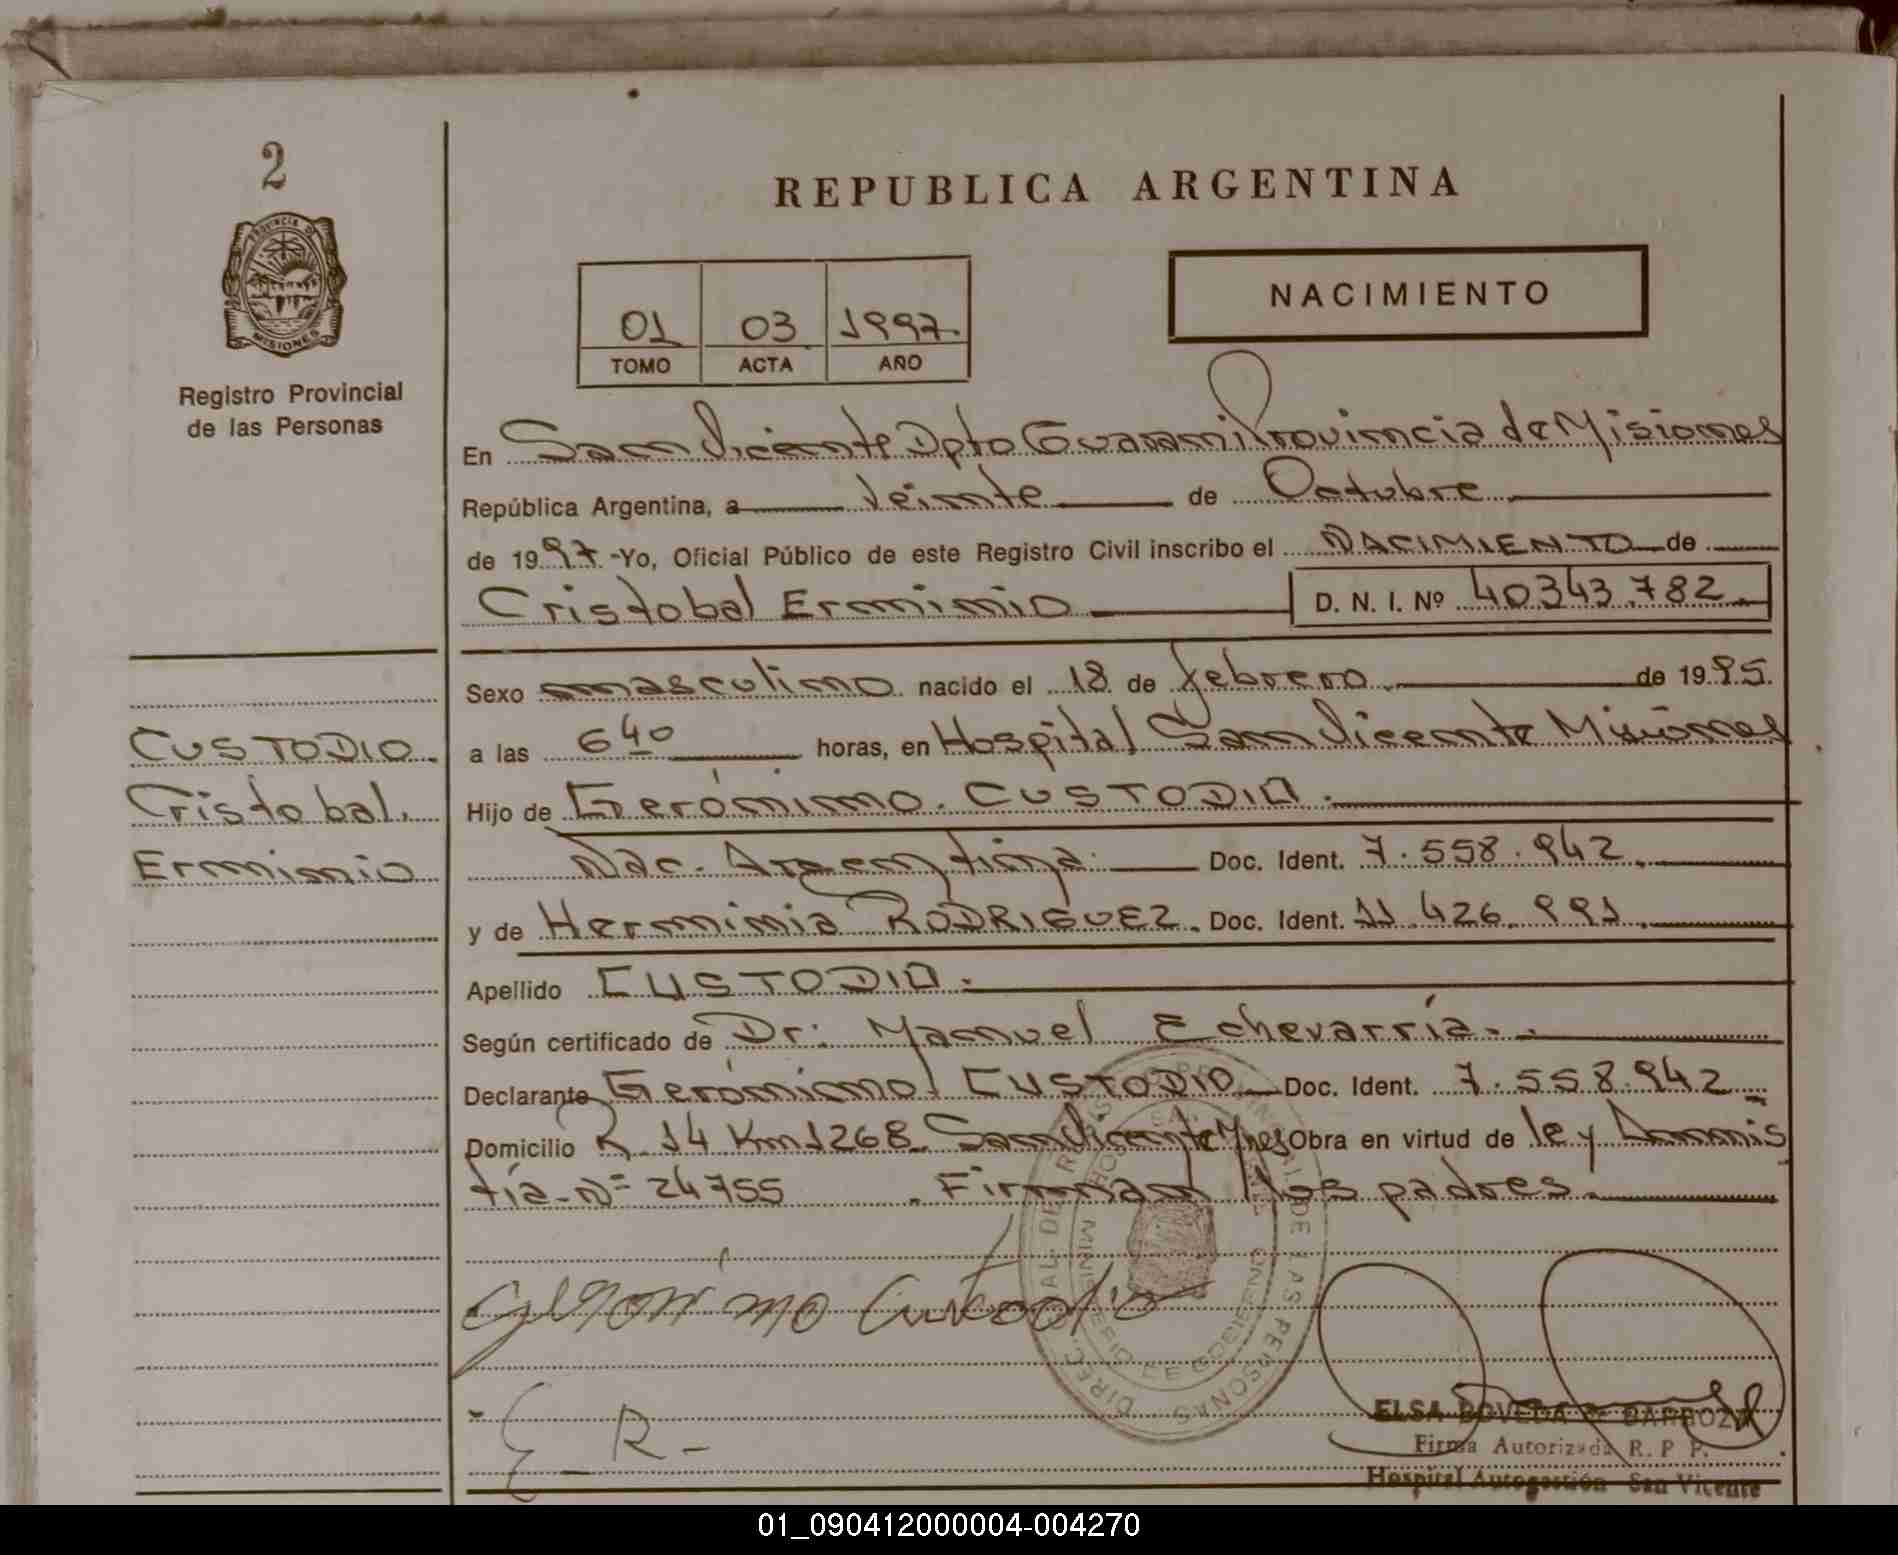 2
PROVINCIA DE
MISIONES
Registro Provincial
de las Personas
REPUBLICA ARGENTINA
01 03 1997
TOMO ACTA AÑO
NACIMIENTO
En San Vicente Dpto Guarani Provincia de Misiones
República Argentina, a Veinte de Octubre
de 1997 - Yo, Oficial Público de este Registro Civil inscribo el NACIMIENTO de
Cristobal Erminio D. N. I. Nº 40343.782.
Sexo masculino nacido el 18 de febrero de 1995.
a las 6 40 horas, en Hospital San Vicente Misiones
Hijo de Gerónimo CUSTODIO.
Nac. Argentina. Doc. Ident. 7.558.942.
y de Herminia RODRIGUEZ. Doc. Ident. 11.426.991.
Apellido CUSTODIO.
Según certificado de Dr: Manuel Echevarría.
Declarante Gerónimo CUSTODIO Doc. Ident. 7.558.942
Domicilio R. 14 Km 1268 San Vicente Mnes Obra en virtud de ley Amnis
tía Nº 24755. Firman los padres.
CUSTODIO.
Cristobal.
Erminio
Gerónimo Custodio
E R -
ELSA BOVEDA de BARBOZA
Firma Autorizada R. P P.
Hospital Autogestión San Vicente
01_090412000004-004270